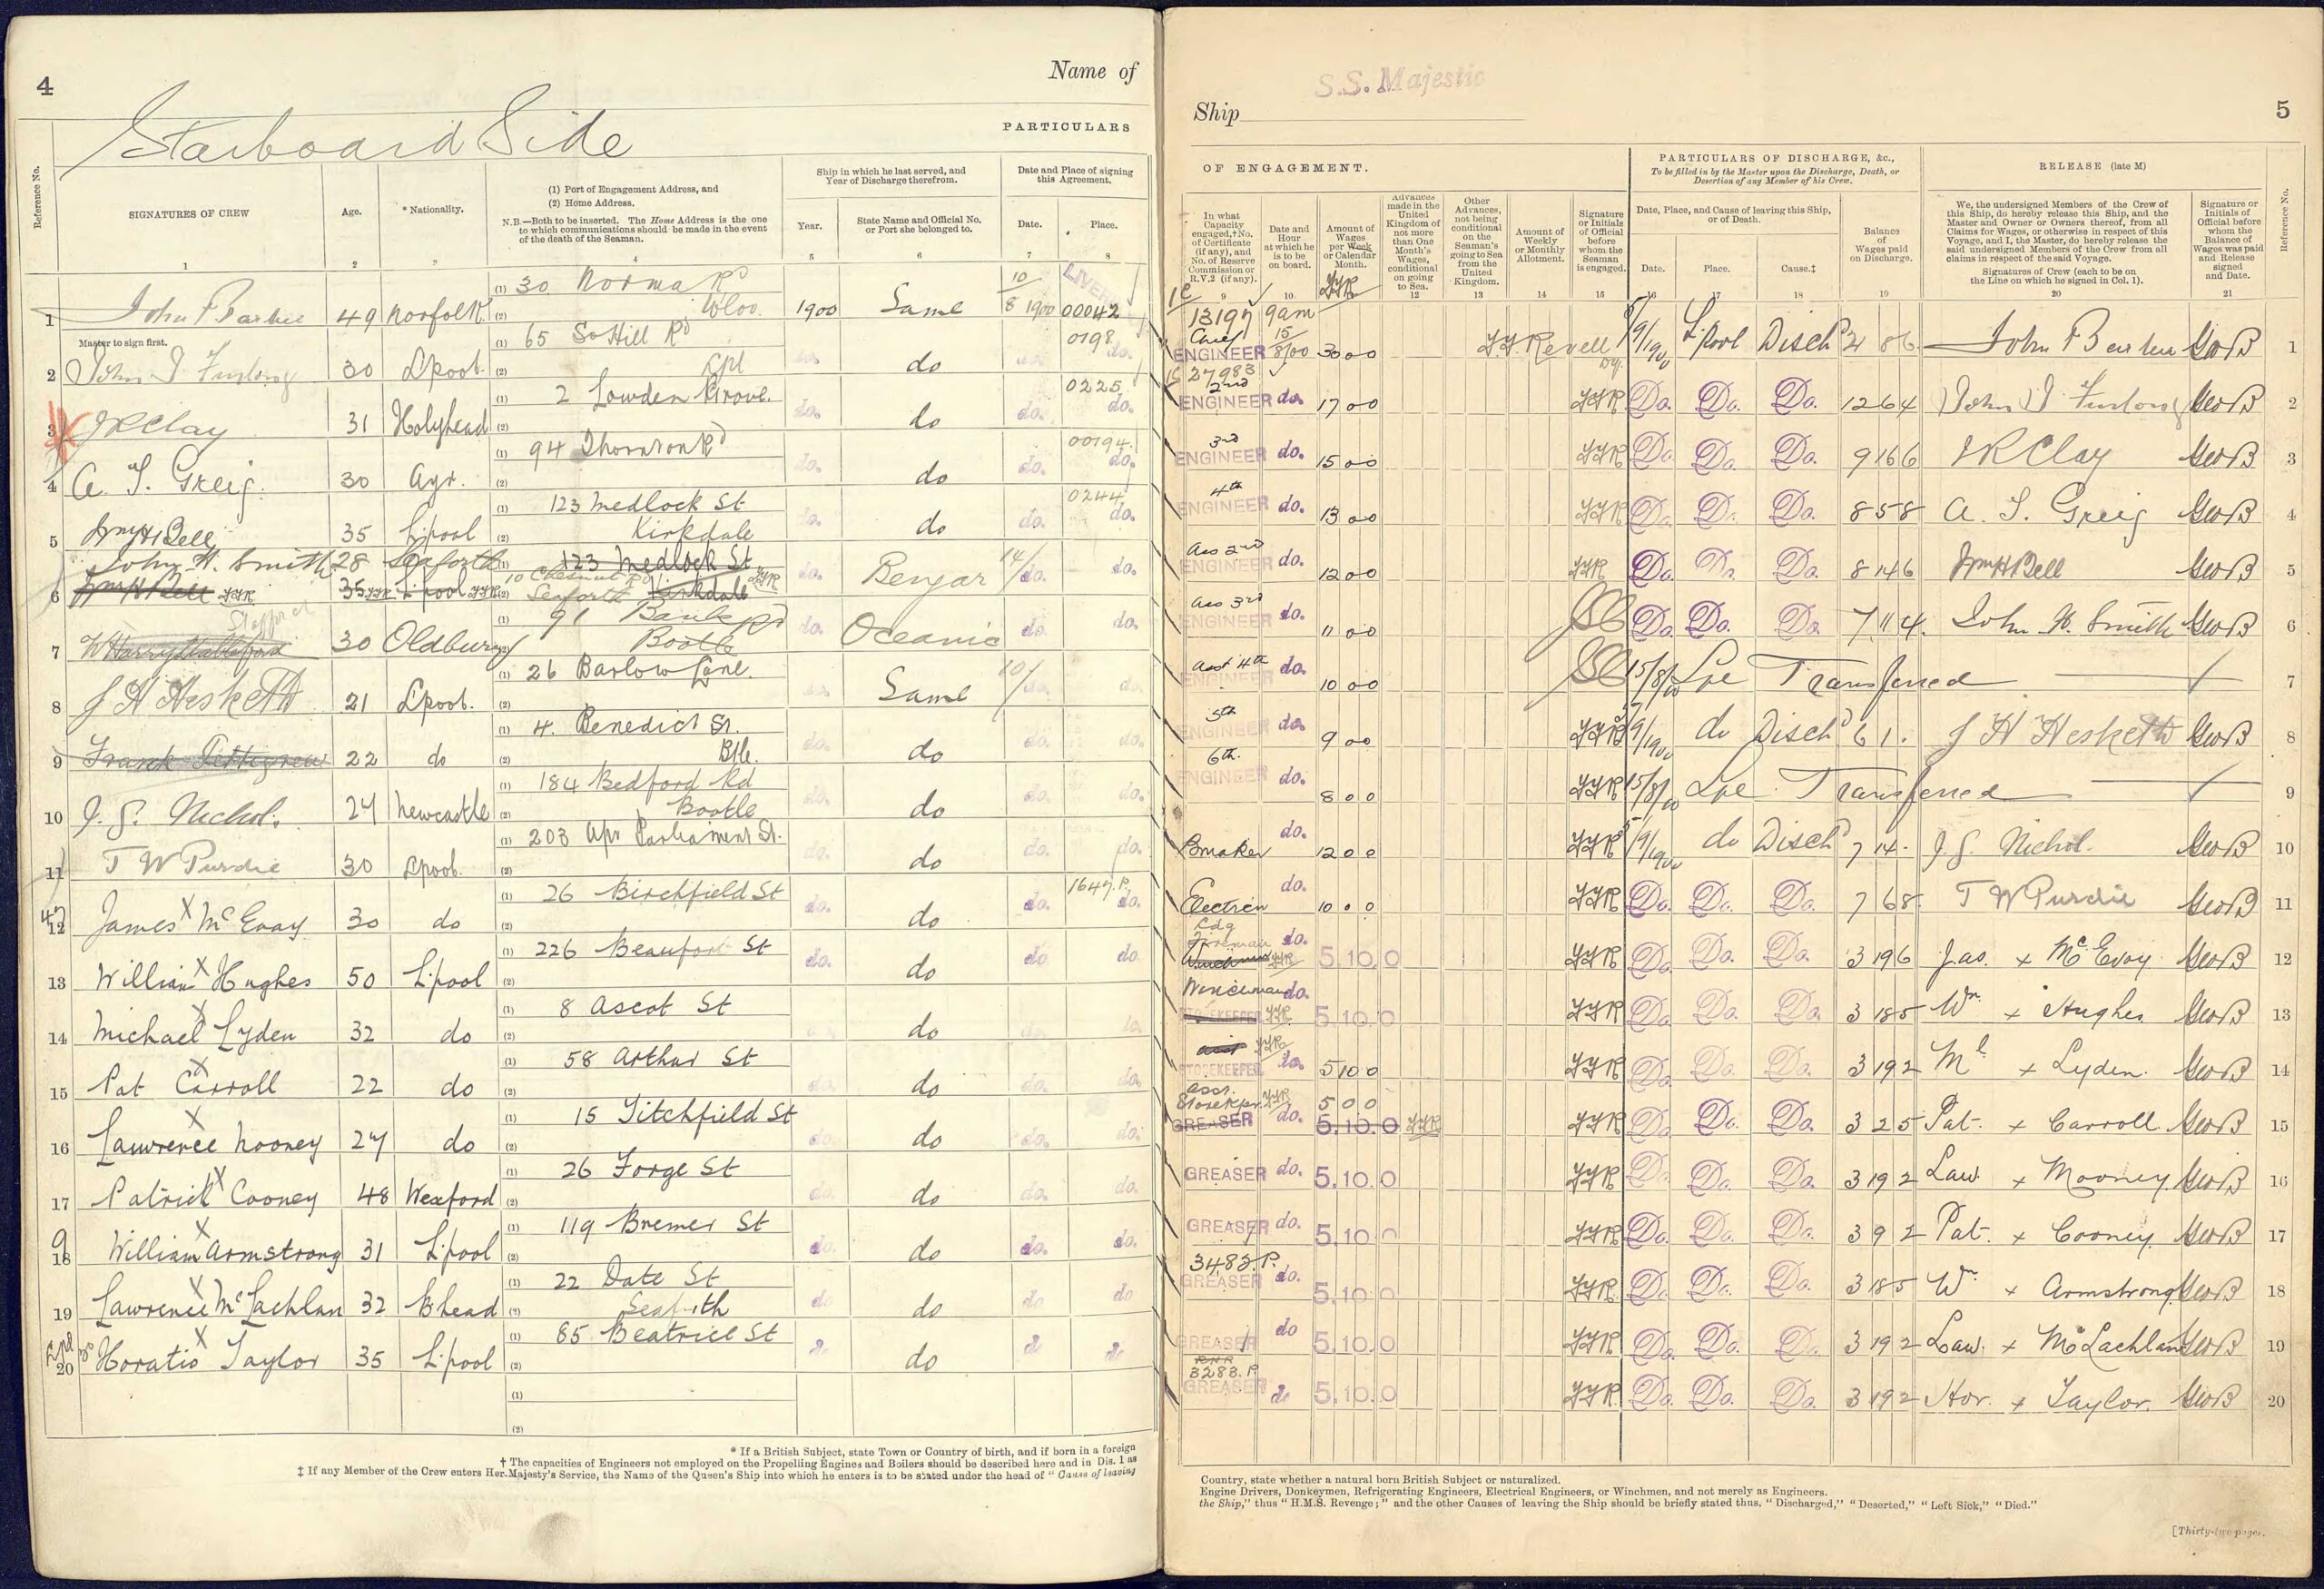 4
Name of
Starboard Side
PARTICULARS
Reference No.
SIGNATURES OF CREW
Age.
* Nationality.
(1) Port of Engagement Address, and
(2) Home Address.
N.B.—Both to be inserted. The Home Address is the one
to which communications should be made in the event
of the death of the Seaman.
Ship in which he last served, and
Year of Discharge therefrom.
Year.
State Name and Official No.
or Port she belonged to.
Date and Place of signing
this Agreement.
Date.
Place.
1 2 4 5 6 7 8
1 John F Barber 49 Norfolk (1) 30 Norma Rd (2) Wloo. 1900 Same 10/8 1900 00042
Master to sign first.
2 John J Furlong 30 Lpool. (1) 65 So Hill Rd (2) Lpl do do. 0198 do.
3 JRClay 31 Holyhead (1) 2 Lowden Grove. (2) do. do do. 0225 do.
4 A. T. Greig. 30 Ayr. (1) 94 Thornton Rd (2) do. do do. 00194. do.
5 Wm H Bell 35 L'pool (1) 123 Medlock St (2) Kirkdale do. do do. 0244 do.
John H. Smith 28 Seaforth (1) 123 Medlock St do. Bengar 14/ do. do.
6 Wm H Bell JJR 35 JJR L'pool JJR (2) 10 Chesnut Rd Seaforth Kirkdale JJR
7 30 Oldbury (1) 91 Bank Rd (2) Bootle do. Oceanic do. do.
8 J H Hesketh 21 Lpool. (1) 26 Barlow Lane. (2) Same 10/ do
9 Frank Pettigrew 22 do (1) 4. Benedict St. (2) Btle. do. do do. do.
10 J. S. Nichol. 27 Newcastle (1) 184 Bedford Rd (2) Bootle do. do do. do.
11 T W Purdie 30 Lpool. (1) 203 Upr Parliament St. (2) do. do do. do.
12 James X McEvoy 30 do (1) 26 Birchfield St (2) do. do do. 1647.P. do.
13 William X Hughes 50 L'pool (1) 226 Beaufort St (2) do. do do do.
14 Michael X Lyden 32 do (1) 8 Ascot St (2) do
15 Pat X Carroll 22 do (1) 58 Arthur St (2) do. do do. do.
16 Lawrence X Mooney 27 do (1) 15 Titchfield St (2) do. do do. do.
17 Patrick X Cooney 48 Wexford (1) 26 Forge St (2) do. do do. do.
18 William X Armstrong 31 L'pool (1) 119 Bremer St (2) do. do do. do.
19 Lawrence X McLachlan 32 B'head (1) 22 Date St (2) Seaforth do do do do
20 Horatio X Taylor 35 L'pool (1) 85 Beatrice St (2) do
(1)
(2)
* If a British Subject, state Town or Country of birth, and if born in a foreign
† The capacities of Engineers not employed on the Propelling Engines and Boilers should be described here and in Dis. 1 as
‡ If any Member of the Crew enters Her Majesty's Service, the Name of the Queen's Ship into which he enters is to be stated under the head of "Cause of leaving
S.S. Majestic
Ship
5
OF ENGAGEMENT.
PARTICULARS OF DISCHARGE, &c.,
To be filled in by the Master upon the Discharge, Death, or
Desertion of any Member of his Crew.
RELEASE (late M)
In what
Capacity
engaged,†No.
of Certificate
(if any), and
No. of Reserve
Commission or
R.V.2 (if any).
Date and
Hour
at which he
is to be
on board.
Amount of
Wages
per Week
or Calendar
Month.
JJR
Advances
made in the
United
Kingdom of
not more
than One
Month's
Wages,
conditional
on going
to Sea.
Other
Advances,
not being
conditional
on the
Seaman's
going to Sea
from the
United
Kingdom.
Amount of
Weekly
or Monthly
Allotment.
Signature
or Initials
of Official
before
whom the
Seaman
is engaged.
Date, Place, and Cause of leaving this Ship,
or of Death.
Date.
Place.
Cause.‡
Balance
of
Wages paid
on Discharge.
We, the undersigned Members of the Crew of
this Ship, do hereby release this Ship, and the
Master and Owner or Owners thereof, from all
Claims for Wages, or otherwise in respect of this
Voyage, and I, the Master, do hereby release the
said undersigned Members of the Crew from all
claims in respect of the said Voyage.
Signatures of Crew (each to be on
the Line on which he signed in Col. 1).
Signature or
Initials of
Official before
whom the
Balance of
Wages was paid
and Release
signed
and Date.
Reference No.
9 10 12 13 14 15 16 17 18 19 20 21
1C 13197 9am
Chief ENGINEER 15/8/00 30 0 0 JJ Revell Dy. 5/9/1900 L'pool Disch 21 8 6 John F Barber GeoB 1
1C 27983
2nd ENGINEER do. 17 0 0 JJR Do. Do. Do. 12 6 4 John J Furlong GeoB 2
3rd ENGINEER do. 15 0 0 JJR Do. Do. Do. 9 16 6 JRClay GeoB 3
4th ENGINEER do. 13 0 0 JJR Do. Do. Do. 8 5 8 A. T. Greig GeoB 4
Ass 2nd ENGINEER do. 12 0 0 JJR Do. Do. Do. 8 14 6 Wm H Bell GeoB 5
Ass 3rd ENGINEER do. 11 0 0 Do. Do. Do. 7 11 4. John H. Smith GeoB 6
Asst 4th ENGINEER do. 10 0 0 15/8/00 Lpe Transferred 7
5th ENGINEER do. 9 0 0 JJR 5/9/1900 do Disch 6 1. J H Hesketh GeoB 8
6th. ENGINEER do. 8 0 0 JJR 15/8/00 Lpe Transferred 9
Bmaker do. 12 0 0 JJR 5/9/1900 do Disch 7 14. J. S. Nichol. GeoB 10
Electrcn do. 10 0 0 JJR Do. Do. Do. 7 6 8 T W Purdie GeoB 11
Ldg Fireman JJR do. 5.10.0 JJR Do. Do. Do. 3 19 6 Jas. x McEvoy GeoB 12
Winchman STOREKEEPER JJR do. 5.10.0 JJR Do. Do. Do. 3 18 5 Wm. x Hughes GeoB 13
Asst JJR STOREKEEPER do. 5 10 0 JJR Do. Do. Do. 3 19 2 Ml x Lyden. GeoB 14
Asst. Storekpr. JJR 5 0 0
GREASER do. 5.10.0 JJR JJR Do. Do. Do. 3 2 5 Pat. x Carroll GeoB 15
GREASER do. 5.10.0 JJR Do. Do. Do. 3 19 2 Law. x Mooney. GeoB 16
GREASER do. 5.10.0 JJR Do. Do. Do. 3 9 2 Pat. x Cooney. GeoB 17
3483.P.
GREASER do. 5.10.0 JJR Do. Do. Do. 3 18 5 Wm. x Armstrong GeoB 18
GREASER do 5.10.0 JJR Do. Do. Do. 3 19 2 Law. x McLachlan GeoB 19
RNR
3283.P
GREASER do 5.10.0 JJR Do. Do. Do. 3 19 2 Hor. x Taylor. GeoB 20
Country, state whether a natural born British Subject or naturalized.
Engine Drivers, Donkeymen, Refrigerating Engineers, Electrical Engineers, or Winchmen, and not merely as Engineers.
the Ship," thus "H.M.S. Revenge;" and the other Causes of leaving the Ship should be briefly stated thus, "Discharged," "Deserted," "Left Sick," "Died."
[Thirty-two pages.